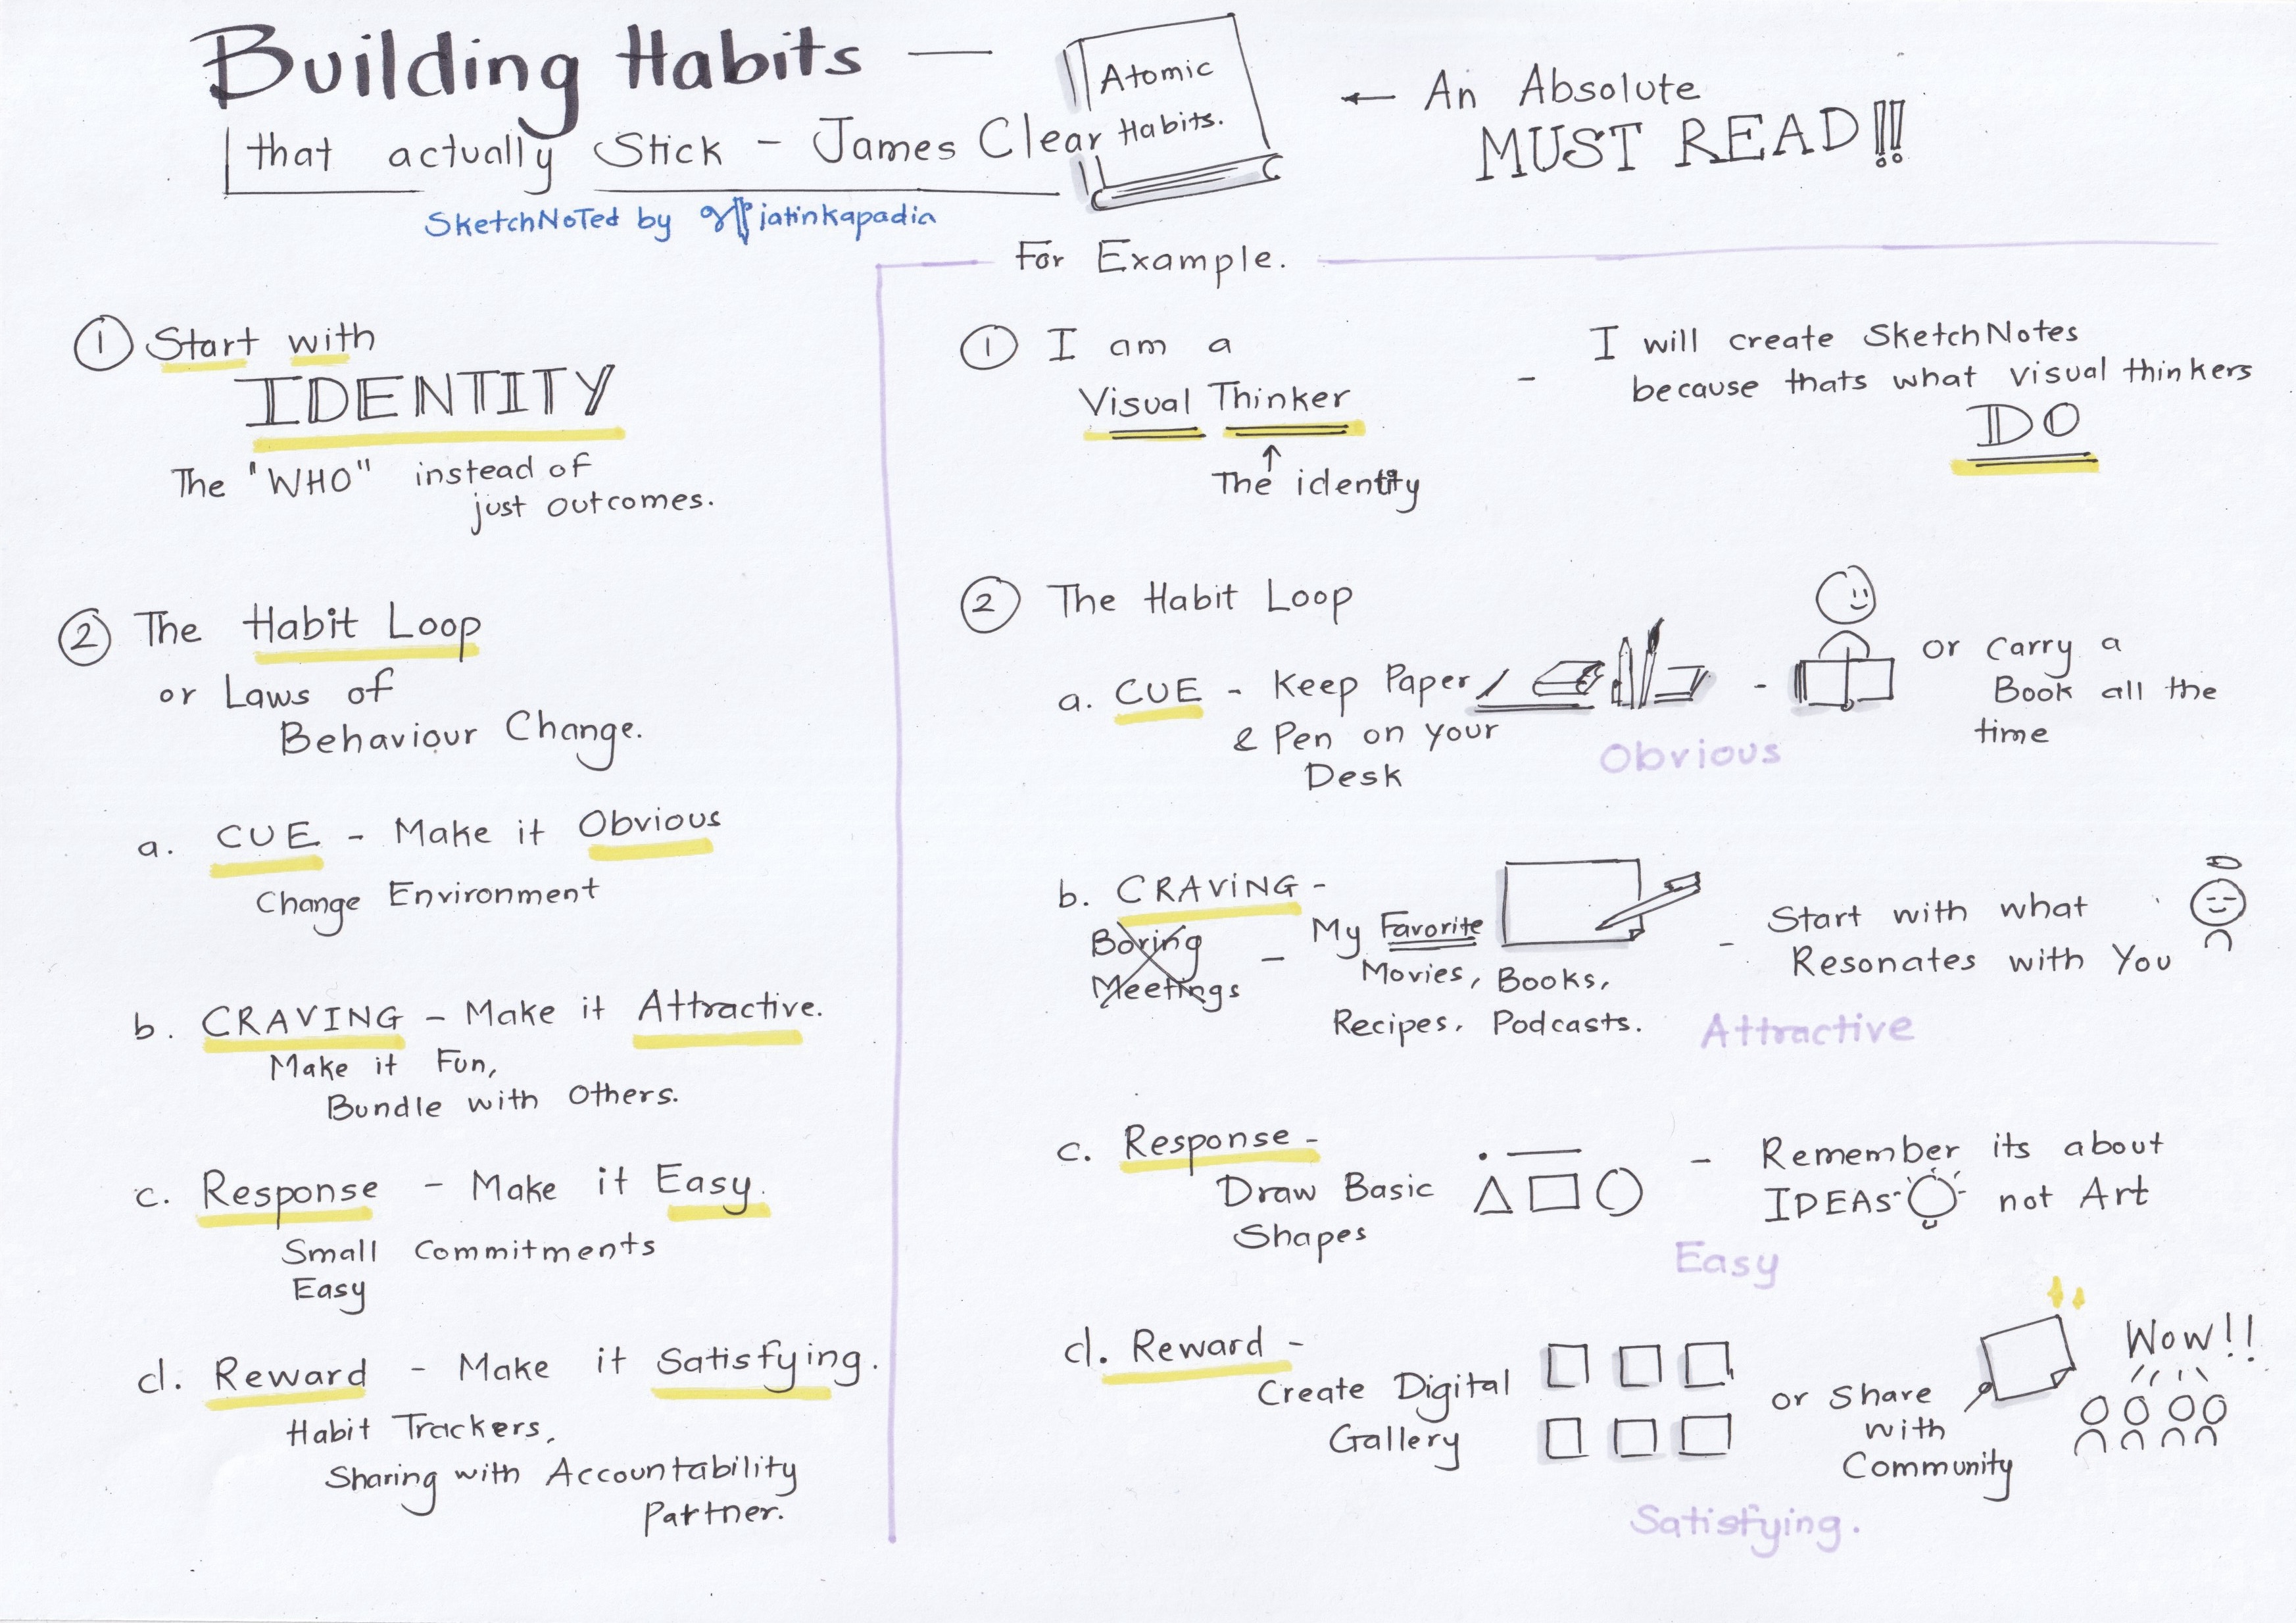 Building Habits —
that actually Stick - James Clear
Atomic
Habits.
← An Absolute
MUST READ!!!
SketchNoTed by jatinkapadia
① Start with
IDENTITY
The "WHO" instead of
just outcomes.
② The Habit Loop
or Laws of
Behaviour Change.
a. CUE - Make it Obvious
Change Environment
b. CRAVING - Make it Attractive.
Make it Fun,
Bundle with Others.
c. Response - Make it Easy.
Small Commitments
Easy
d. Reward - Make it Satisfying.
Habit Trackers,
Sharing with Accountability
Partner.
For Example.
① I am a
Visual Thinker
↑
The identity
- I will create SketchNotes
because thats what visual thinkers
DO
② The Habit Loop
a. CUE - Keep Paper
& Pen on your
Desk
- or Carry a
Book all the
time
Obvious
b. CRAViNG -
Boring
Meetings
- My Favorite
Movies, Books,
Recipes, Podcasts.
- Start with what
Resonates with You
Attractive
c. Response -
Draw Basic
Shapes
- Remember its about
IDEAS not Art
Easy
d. Reward -
Create Digital
Gallery
or Share
with
Community
Wow!!
Satisfying.